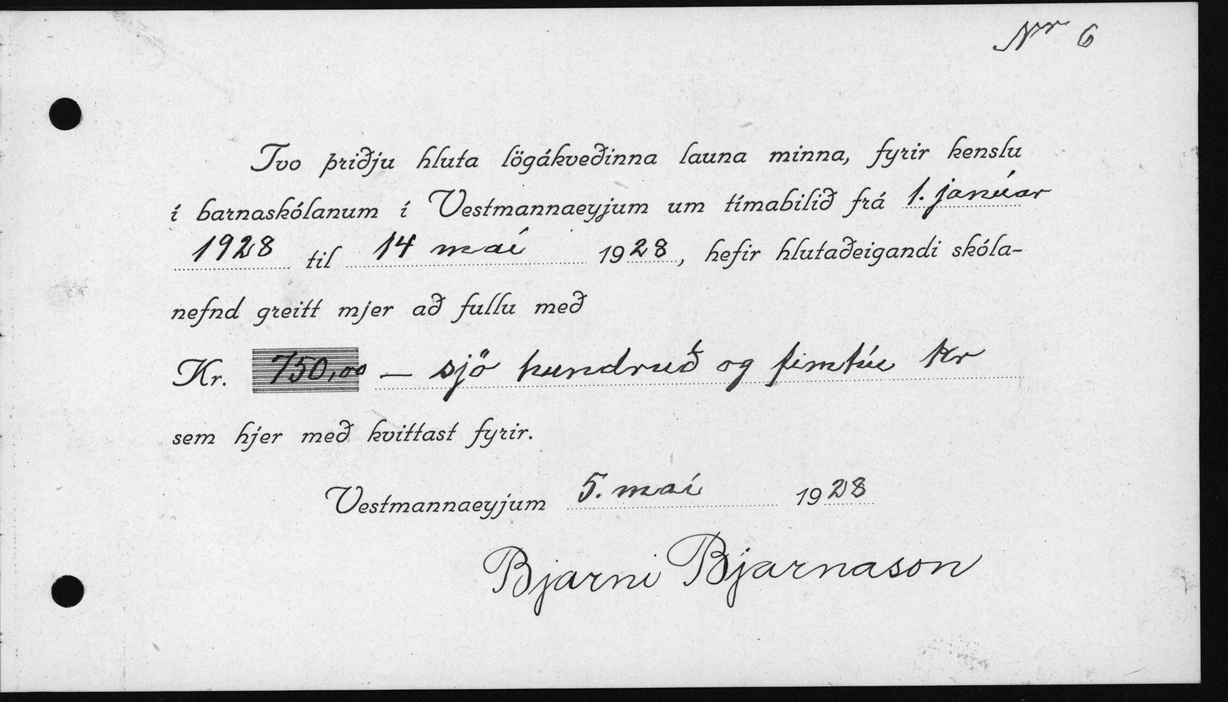 Nr 6
Tvo þriðju hluta lögákveðinna launa minna, fyrir kenslu
í barnaskólanum í Vestmannaeyjum um tímabilið frá 1. janúar
1928 til 14 maí 1928, hefir hlutaðeigandi skóla-
nefnd greitt mjer að fullu með
Kr. 750,00 — sjö hundruð og fimtíu Kr
sem hjer með kvittast fyrir.
Vestmannaeyjum 5. maí 1928
Bjarni Bjarnason